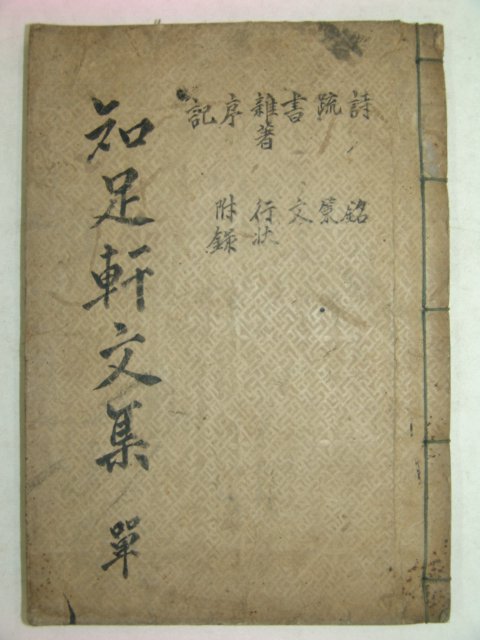 詩 銘
疏 策
書 文
雜著 行狀
序 附錄
記
知足軒文集 單